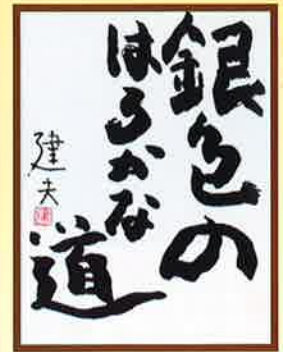 銀色の
はるかな
道
建夫